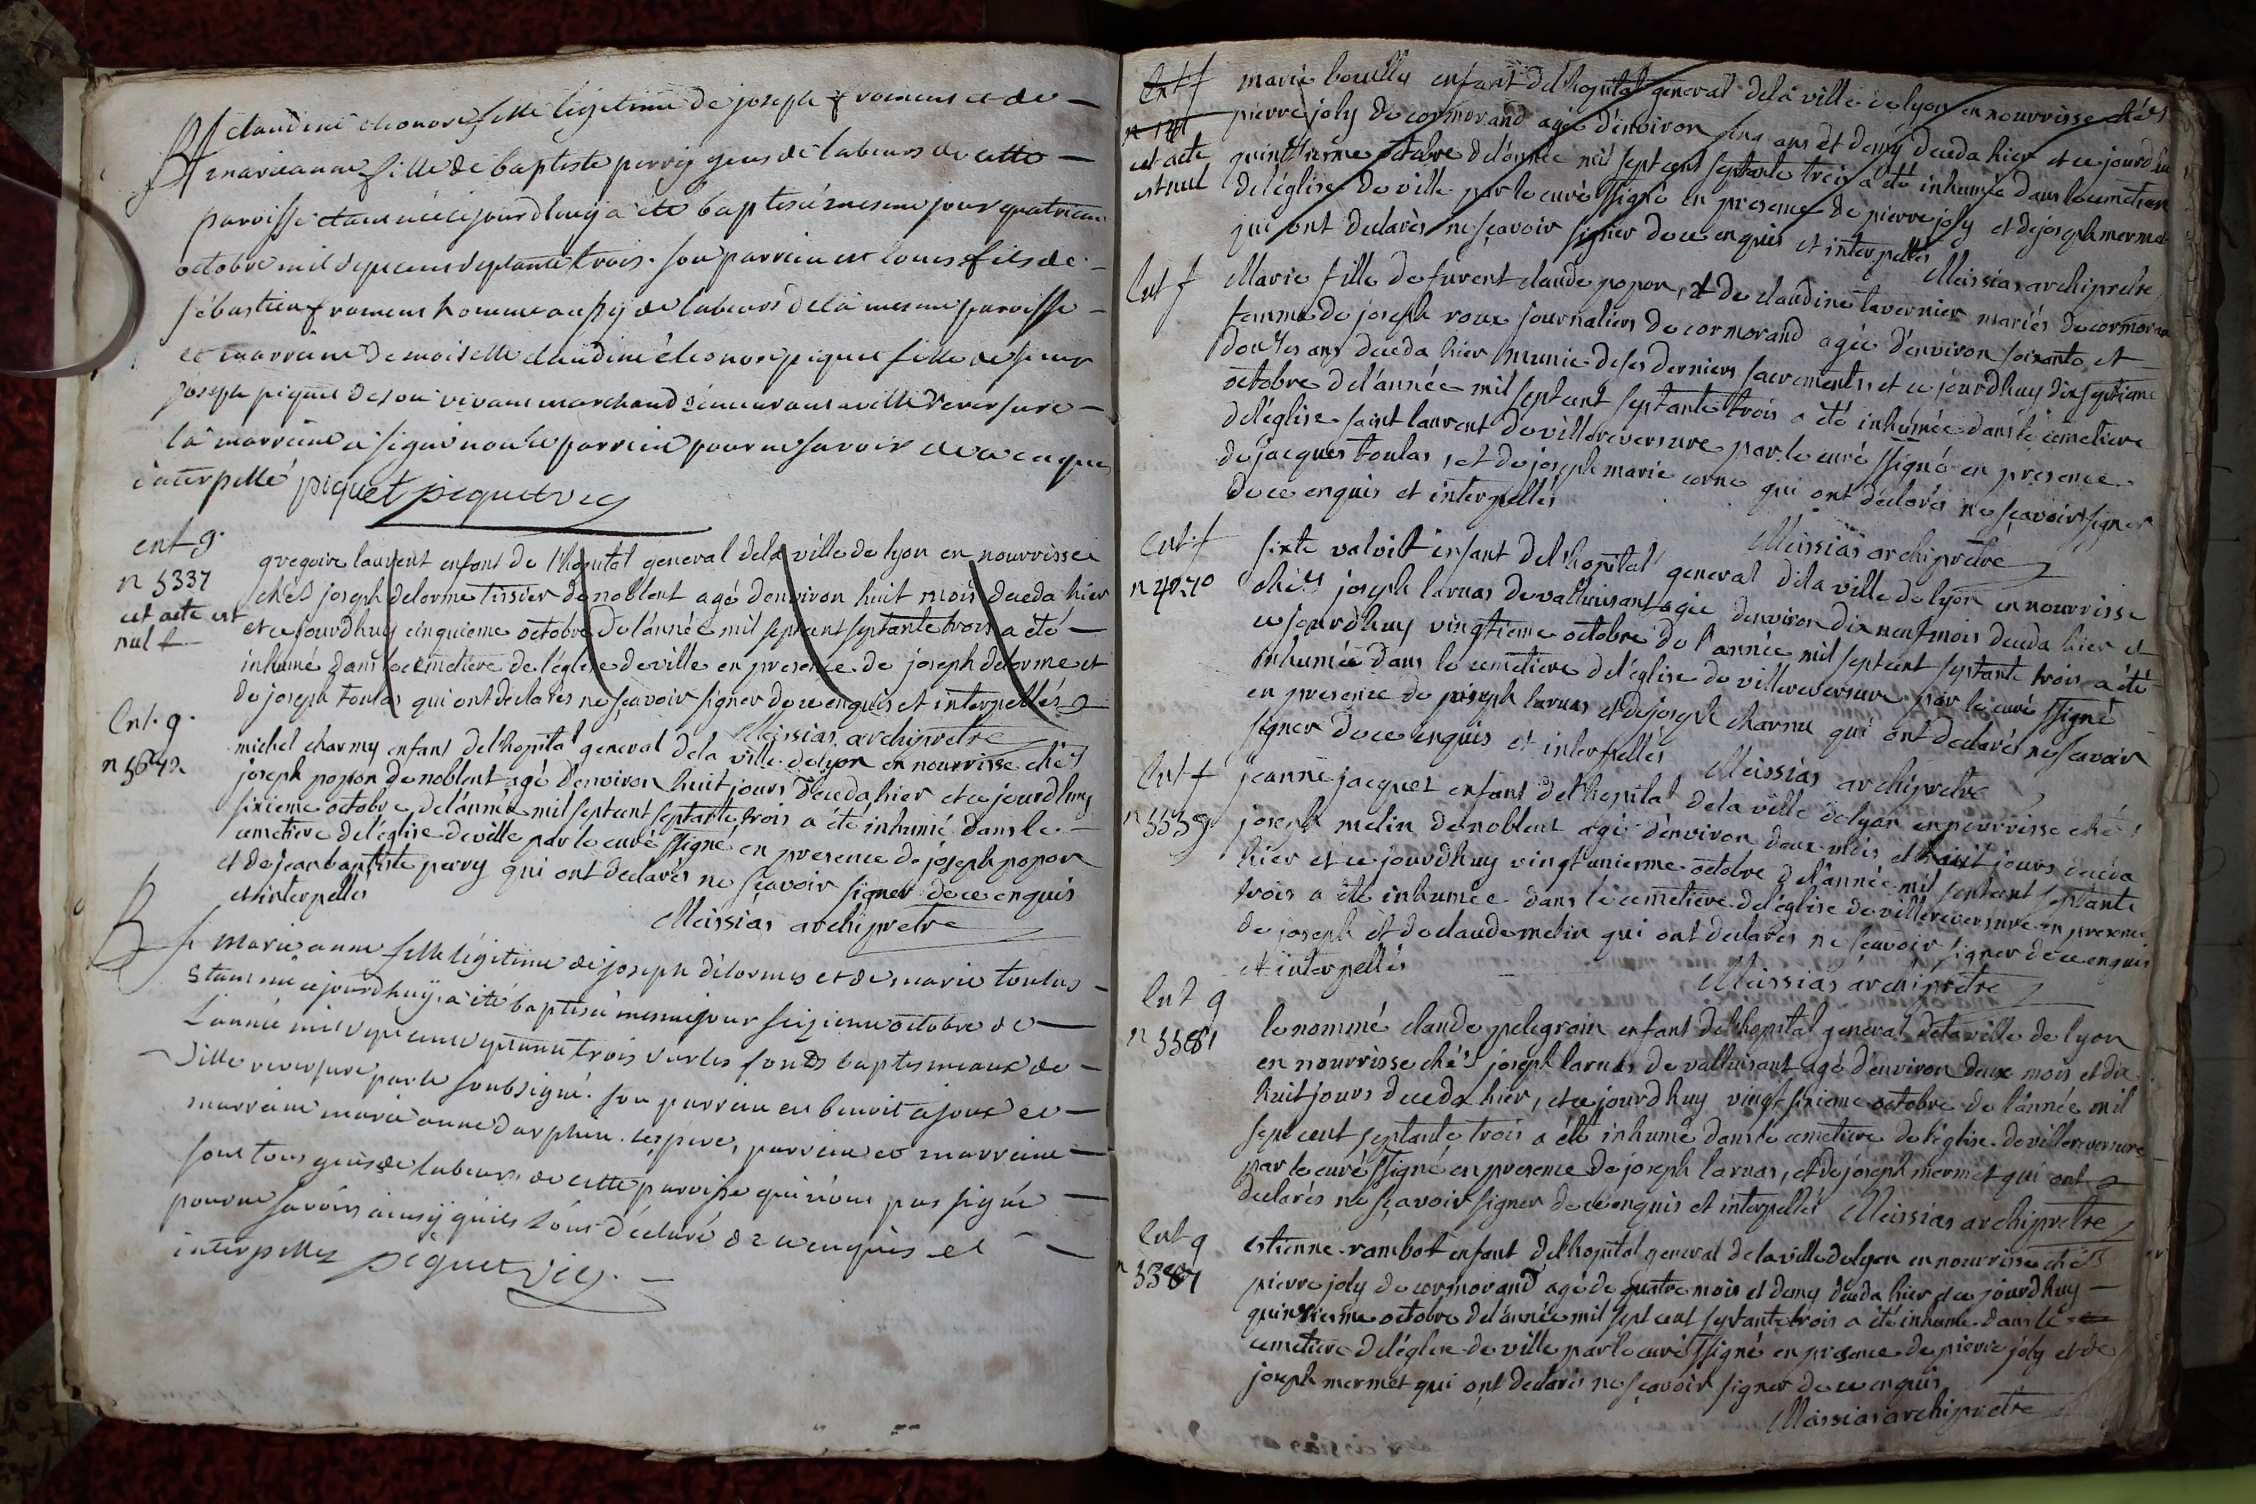 Bf claudine eleonore fille legitime de joseph framens et de
marieanne fille de baptiste perrin gens de labeurs de cette
paroisse etant née ce jourdhuy a été baptisée mesme jour quatrieme
octobre mil sept cens septante trois. son parrein est louis fils de
sébastien framens homme aussy de labeurs de la mesme paroisse
et marreine demoiselle claudine éleonore piquet fille de sieur
joseph piquet de son vivant marchand demeurant a villereversure
la marreine a signé non le parrein pour ne savoir de ce enquis
interpellé piquet piquet vic
ent g.
n 5337
cet acte est
nul
gregoire laurent enfant de l'hopital general dela ville de lyon en nourrisse
chés joseph delorme tissier de noblent agé denviron huit mois deceda hier
et ce jourdhuy cinquieme octobre de l'année mil sept cent septante trois a été
inhumé dans le cemetiere de l'église de ville en presence de joseph delorme et
de joseph toulas qui ont declarés ne sçavoir signer de ce enquis et interpellés
Meissias archipretre
Ent. g.
n 5642
michel charmy enfant del'hopital general dela ville de lyon en nourrisse chés
joseph popon de noblent agé d'environ huit jours deceda hier et ce jourdhuy
sixieme octobre de l'année mil sept cent septante trois a été inhumé dans le
cemetiere de l'église de ville par le curé ssigné en presence de joseph popon
et de jean baptiste perry qui ont declarés ne sçavoir signer de ce enquis
et interpellés
Meissias archipretre
Bf marie anne fille légitime de joseph délormes et de marie toulas
etant née ce jourdhuy a été baptisée mesme jour seizieme octobre de
L'année mil sept cens septante trois sur les fonds baptismeaux de
ville reversure par le soubsigné. son parrein est benoit ajoux et
marreine marie anne darphin. les pere, parrein et marreine
sont tous gens de labeurs de cette paroisse qui n'ont pas signé
pour ne savoir ainsy qu'ils l'ont déclaré de ce enquis et
interpellez piquet vic.
Ent f
n 141
cet acte
est nul
marie bouilly enfant del'hopital general dela ville de lyon en nourrisse chés
pierre joly de cormorand agée d'environ cinq ans et demy deceda hier et ce jourdhuy
quinzieme octobre de l'année mil sept cent septante trois a été inhumée dans le cemetiere
del'église de ville par le curé ssigné en presence de pierre joly et de joseph mermet
qui ont declarés ne sçavoir signer de ce enquis et interpellés
Meissias archipretre
Ent f
Marie fille de furent claude popon, et de claudine tavernier mariés de cormorand
femme de joseph roux journaliers de cormorand agée d'environ soixante et
douzes ans deceda hier munie de ses derniers sacrements, et ce jourdhuy dix septieme
octobre de l'année mil sept cent septante trois a été inhumée dans le cemetiere
del'église saint laurent de villereversure par le curé ssigné en presence
de jacques toulas, et de joseph marie corne qui ont declarés ne sçavoir signer
de ce enquis et interpellés
Meissias archipretre
Ent. f
n 4240
sixte valoit enfant del'hopital general dela ville de lyon en nourrisse
chés joseph larnas de valluisant agée d'environ dix neuf mois deceda hier et
ce jourdhuy vingtieme octobre de l'année mil sept cent septante trois a été
inhumée dans le cemetiere del'église de villereversure par le curé ssigné
en presence de joseph larnas et de joseph charnu qui ont declarés ne scavoir
signer de ce enquis et interpellés Meissias archipretre
Ent f
n 5359
jeanne jacquet enfant del'hopital dela ville de lyon en nourrisse chés
joseph melin de noblent agée d'environ deux mois et huit jours deceda
hier et ce jourdhuy vingt unieme octobre de l'année mil sept cent septante
trois a été inhumée dans le cemetiere del'église de villereversure en presence
de joseph et de claude melin qui ont declarés ne sçavoir signer de ce enquis
et interpellés
Meissias archipretre
Ent g
n 5581
le nommé claude pelegrain enfant del'hopital general dela ville de lyon
en nourrisse chés joseph larnas de valluisant agé d'environ deux mois et dix
huit jours deceda hier, et ce jourdhuy vingt sixieme octobre de l'année mil
sept cent septante trois a été inhumé dans le cemetiere de l'église de villereversure
par le curé ssigné en presence de joseph larnas, et de joseph mermet qui ont
declarés ne sçavoir signer de ce enquis et interpellés Meissias archipretre
Ent g
n 5387
estienne rambot enfant del'hopital general de la ville de lyon en nourrisse chés
pierre joly de cormorand agé de quatre mois et demy deceda hier et ce jourdhuy
quinzieme octobre de l'année mil sept cent septante trois a été inhumé dans le
cemetiere del'église de ville par le curé ssigné en presence de pierre joly et de
joseph mermet qui ont declarés ne sçavoir signer de ce enquis
Meissias archipretre